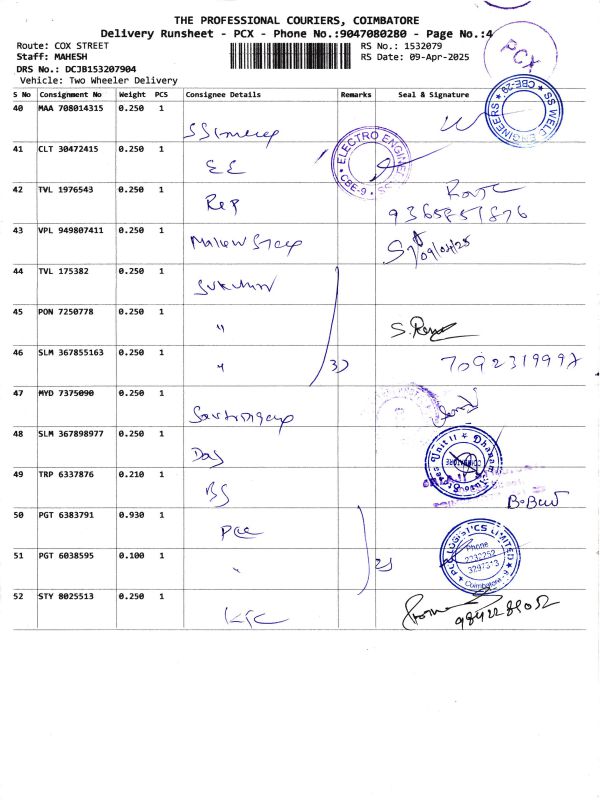 THE PROFESSIONAL COURIERS, COIMBATORE
Delivery Runsheet - PCX - Phone No.:9047080280 - Page No.:4
Route: COX STREET
RS No.: 1532079
Staff: MAHESH
RS Date: 09-Apr-2025
DRS No.: DCJB153207904
Vehicle: Two Wheeler Delivery
PCX
S No Consignment No Weight PCS Consignee Details Remarks Seal & Signature
40 MAA 708014315 0.250 1
SS WELD ENGINEERS CBE-29
41 CLT 30472415 0.250 1
EE
ELECTRO ENGINEE CBE-9
42 TVL 1976543 0.250 1
Rep
9365851876
43 VPL 949807411 0.250 1
09/04/25
44 TVL 175382 0.250 1
45 PON 7250778 0.250 1
"
46 SLM 367855163 0.250 1
" 3)
7092319997
47 MYD 7375090 0.250 1
48 SLM 367898977 0.250 1
Das
Unit II
COIMBATORE
49 TRP 6337876 0.210 1
BS
50 PGT 6383791 0.930 1
51 PGT 6038595 0.100 1
" 2)
LOGISTICS LIMITED
Phone
2232252
Coimbatore
52 STY 8025513 0.250 1
KFC